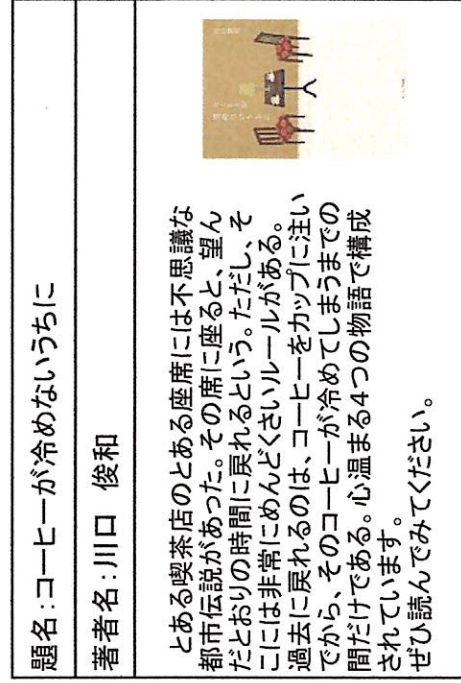 題名:コーヒーが冷めないうちに
著者名:川口 俊和
とある喫茶店のとある座席には不思議な
都市伝説があった。その席に座ると、望ん
だとおりの時間に戻れるという。ただし、そ
こには非常にめんどくさいルールがある。
過去に戻れるのは、コーヒーをカップに注い
でから、そのコーヒーが冷めてしまうまでの
間だけである。心温まる4つの物語で構成
されています。
ぜひ読んでみてください。